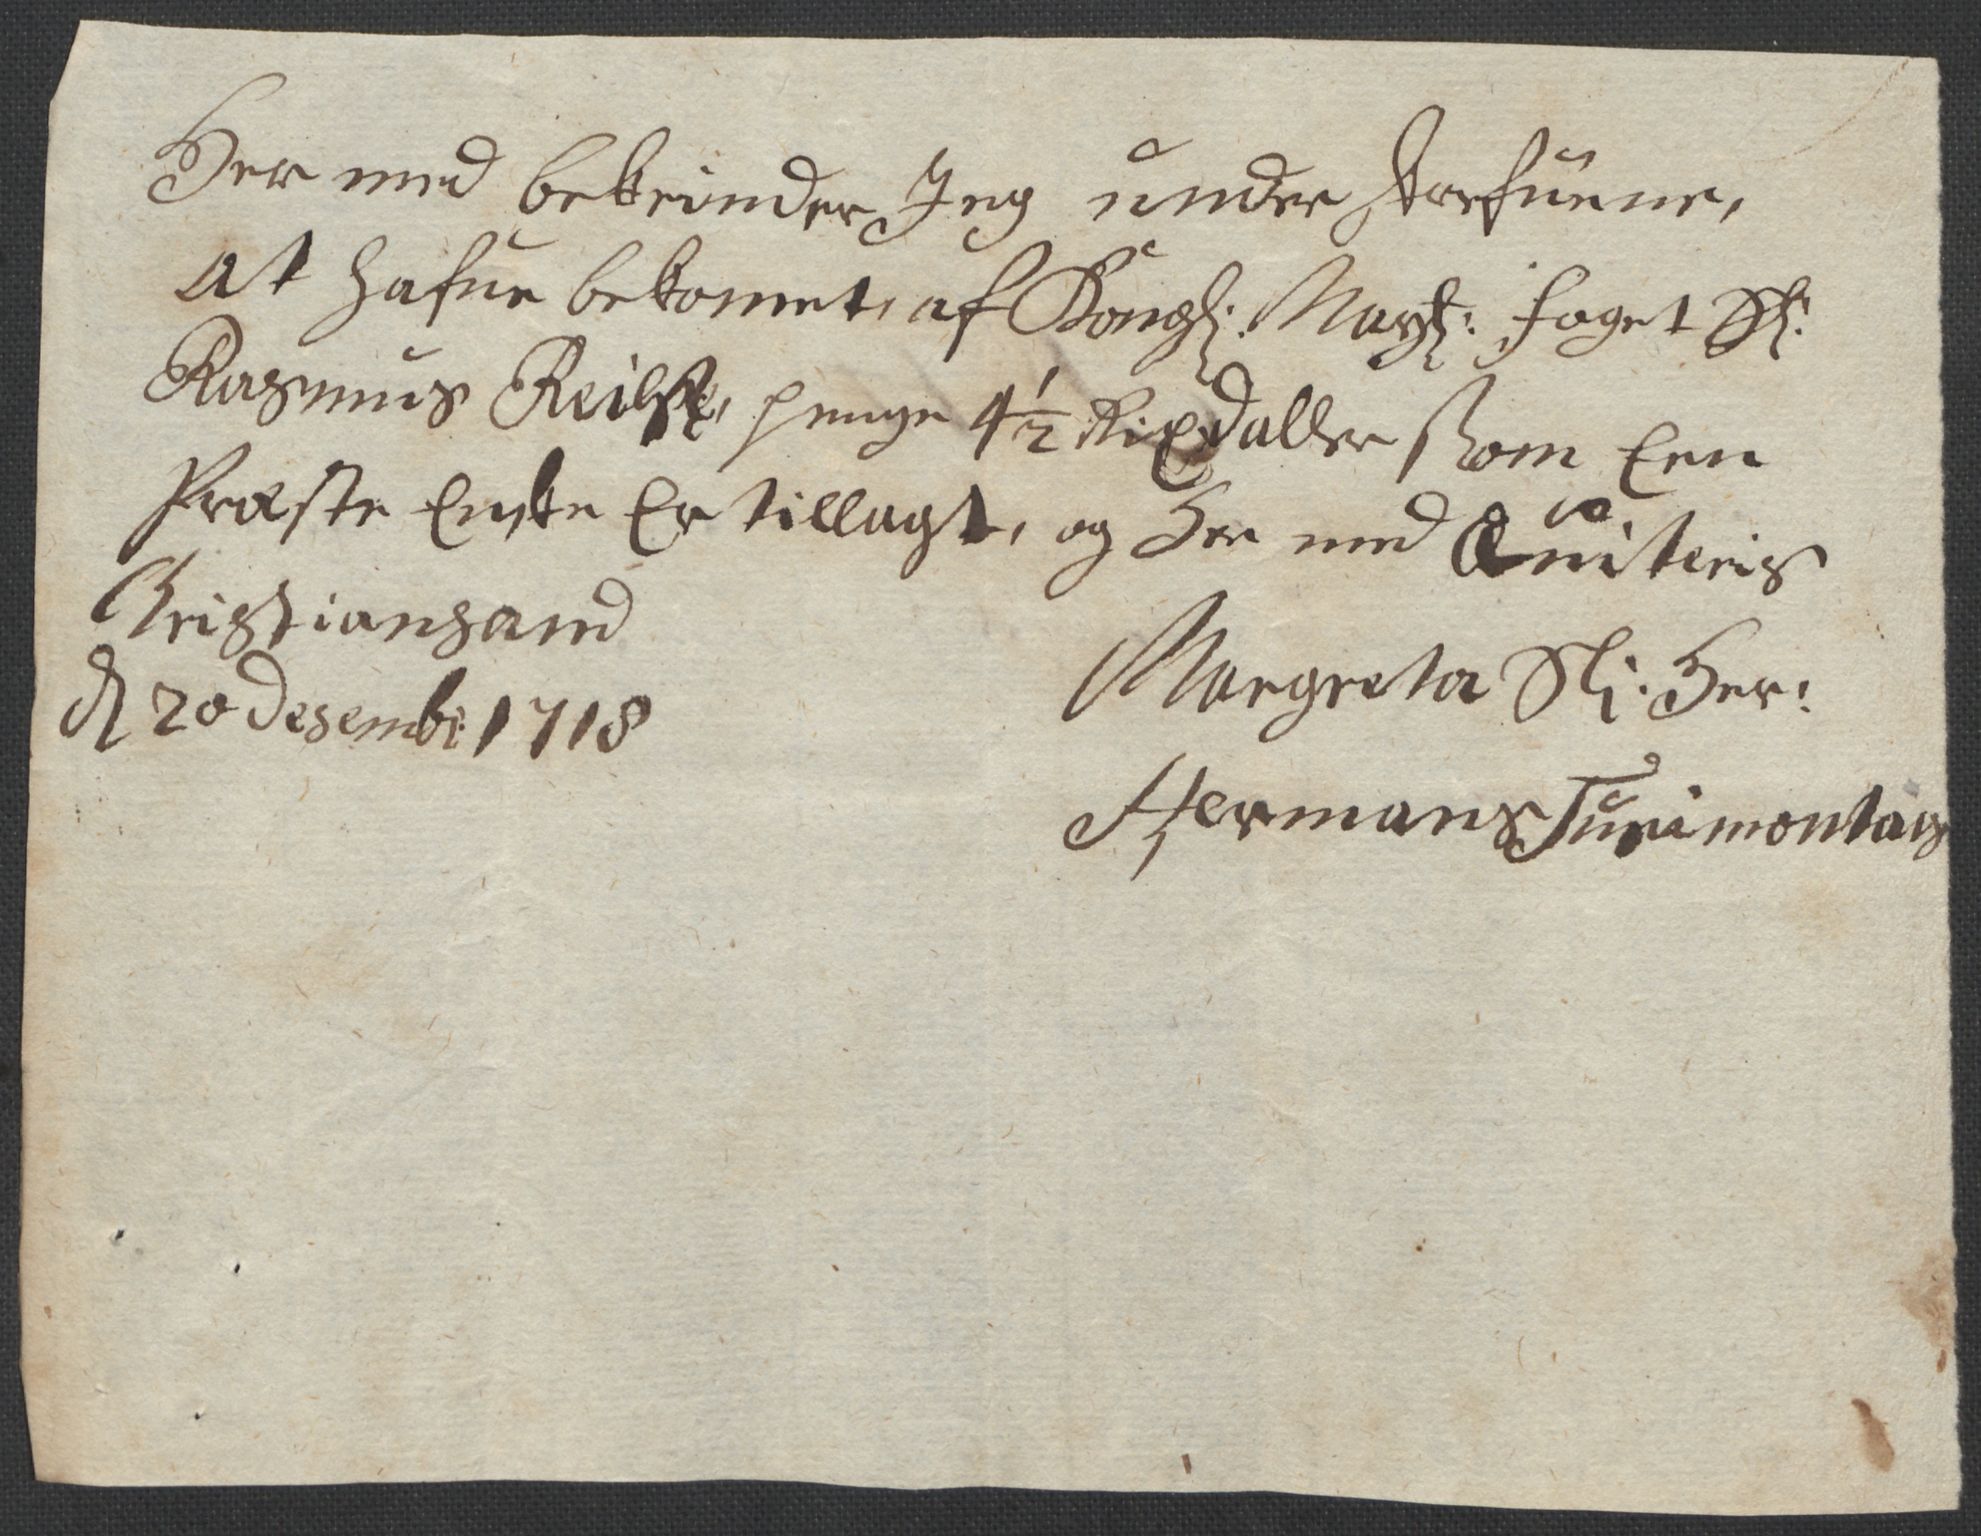 Her med bekeinder Jeg under skrefuene,
at hafue bekomet, af Kongl: Mayt: foget Sl:
Rasmus Reilst, penge 4½ Rixdaller som Een
Præste Encke Er tillagt, og Her med Quiteris
Christiansand
d 20 Desemb: 1718
Margreta Sl: Her:
Hermans Turimontans